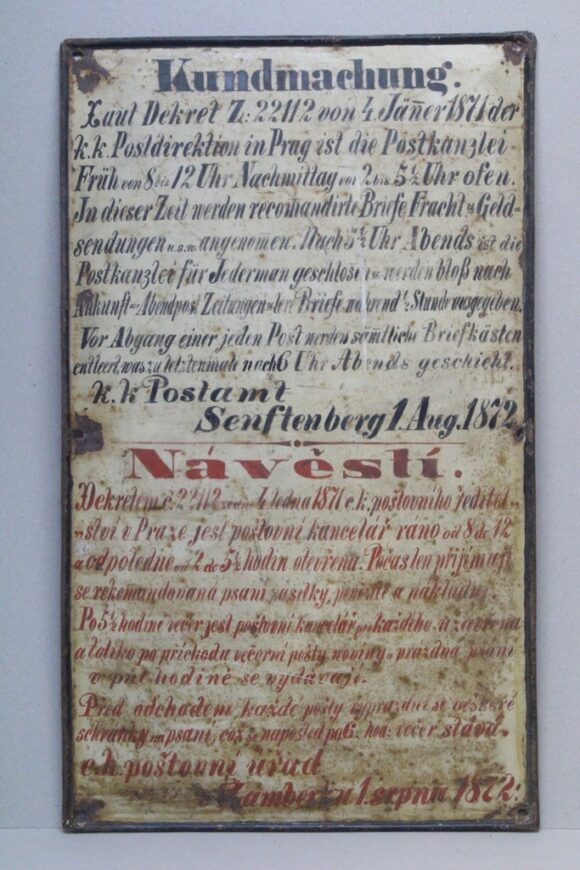 Kundmachung.
Laut Dekret Z: 22112 von 4. Jäner 1871 der
k. k. Postdirektion in Prag ist die Postkanzlei-
Früh von 8 bis 12 Uhr Nachmittag von 2 bis 5½ Uhr ofen.
In dieser Zeit werden recomandirte Briefe, Fracht u Geld-
sendungen u.s.w. angenom̅en. Nach 5½ Uhr Abends ist die
Postkanzlei für Jederman geschlosen u werden bloß nach
Ankunft der Abendpost Zeitungen u lere Briefe während ½ Stunde ausgegeben.
Vor Abgang einer jeden Post werden säm̅tliche Briefkästen
entleert, was zu letztenmale nach 6 Uhr Abends geschieht.
k. k Postamt
Senftenberg 1. Aug. 1872.
Návěstí.
Dekretem č. 22112 ze dne 4. ledna 1871 c. k. poštovního ředitel-
ství v Praze jest poštovní kancelář ráno od 8 do 12
a odpoledne od 2 do 5½ hodin otevřena. Počas ten přijímají
se rekomandovaná psaní zásilky, peněžné a nákladní.
Po 5½ hodině večer jest poštovní kancelář pro každého uzavřena
a toliko po příchodu večerní pošty noviny a prázdná psaní
v půl hodině se vydávají.
Před odchodem každé pošty vyprázdní se veškeré
schránky na psaní, což se naposled po 6. hod: večer stává.
c. k. poštovní úřad
v Žamberku 1. srpna 1872: